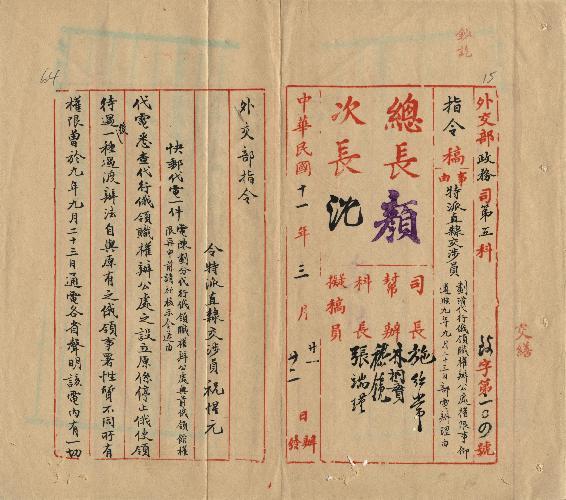 15
外交部政務司第五科
字第一〇四號
指令稿
事由
特派直隸交涉員
劃清代行俄領職權辦公處權限事仰
遵照九年九月二十三日部電辦理由
總長顏
次長沈
司長施紹常
幫辦
科長
擬稿員張瑞
中華民國十一年三月廿一日辦
廿二發
交繕
64
外交部指令
令特派直隸交涉員祝惺元
快郵代電一件
電陳劃分代行俄領職權辦公處與前俄領館權
限並申前請祈核示令遵由
代電悉查代行俄領職權辦公處之設立原係停止俄使領
待遇後一種過渡辦法自與原有之俄領事署性質不同所有
權限曾於九年九月二十三日通電各省聲明該電內有一切